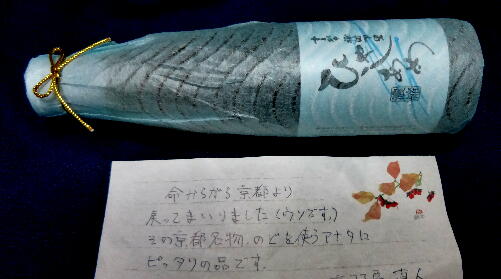 ひやしあめ
命からがら京都より
戻ってまいりました(ウソです。)
その京都名物、のどを使うアナタに
ピッタリの品です。